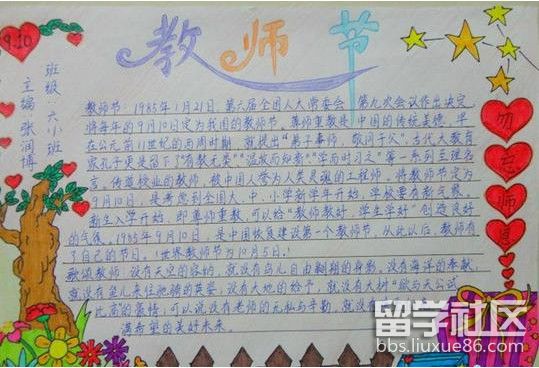 9.10
教师节
班级:六小班
主编:张润博
教师节,1985年1月21日,第六届全国人大常委会第九次会议作出决定,
将每年的9月10日定为我国的教师节。尊师重教是中国的传统美德,早
在公元前11世纪的西周时期,就提出"弟子事师,敬同于父"。古代大教育
家孔子更是留下了"有教无类""温故而知新""学而时习之"等一系列至理名
言。传道授业的教师,被中国人誉为人类灵魂的工程师。将教师节定为
9月10日,是考虑到全国大、中、小学新学年开始,学校要有新气象。
新生入学开始,即尊师重教,可以给"教师教好,学生学好"创造良好
的气氛。1985年9月10日,是中国恢复建设第一个教师节,从此以后,教师有
了自己的节日。(世界教师节为10月5日。)
歌颂教师:没有天空的容纳,就没有鸟儿自由翱翔的身影,没有海洋的奉献,
就没有鱼儿来往驰骋的英姿,没有大地的给予,就没有大树"欲与天公试
比高的豪情,可以说没有老师的无私与辛勤,就没有
满希望的美好未来。
勿忘师恩
留学社区
bbs.liuxue86.com